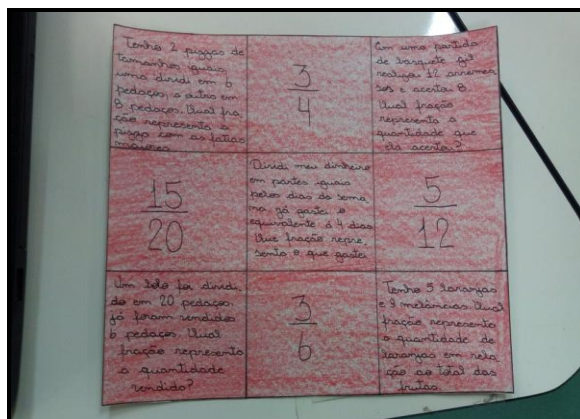 Tenho 2 pizzas de
tamanhos iguais
uma dividi em 6
pedaços, a outra em
8 pedaços. Qual fra
ção representa a
pizza com as fatias
maiores
3
4
Em uma partida
de basquete Gil
realizou 12 arremes
sos e acertou 8
Qual fração
representa a
quantidade que
ela acertou?
15
20
Dividi meu dinheiro
em partes iguais
pelos dias da sema
na já gastei o
equivalente à 4 dias
Que fração repre
senta o que gastei
5
12
Um bolo foi dividi
do em 20 pedaços,
já foram vendidos
6 pedaços. Qual
fração representa
a quantidade
vendida?
3
6
Tenho 5 laranjas
e 8 melâncias. Qual
fração representa
a quantidade de
laranjas em rela
ção ao total das
frutas.